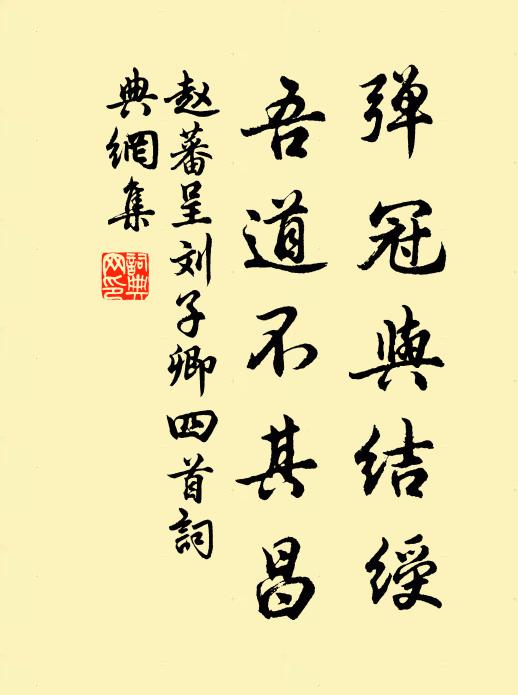 弹冠與结绶
吾道不其昌
赵蕃呈刘子卿四首詞
典網集
詞典
网印